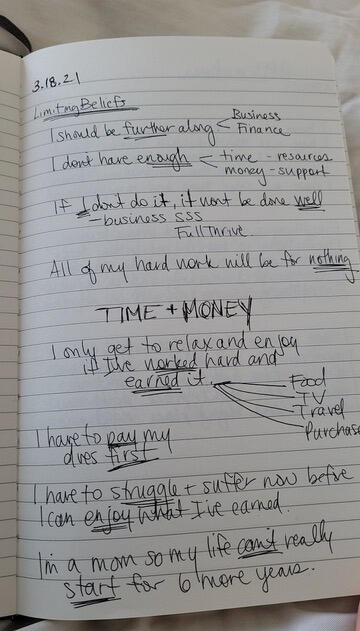 3.18.21
Limiting Beliefs
I should be further along < Business
Finance
I don't have enough < time - resources
money - support
If I dont do it, it wont be done well
- business $$$
FullThrive
All of my hard work will be for nothing
TIME + MONEY
I only get to relax and enjoy
if I've worked hard and
earned it.
Food
TV
Travel
Purchase
I have to pay my
dues first
I have to struggle + suffer now before
I can enjoy what I've earned.
I'm a mom so my life can't really
start for 6 more years.